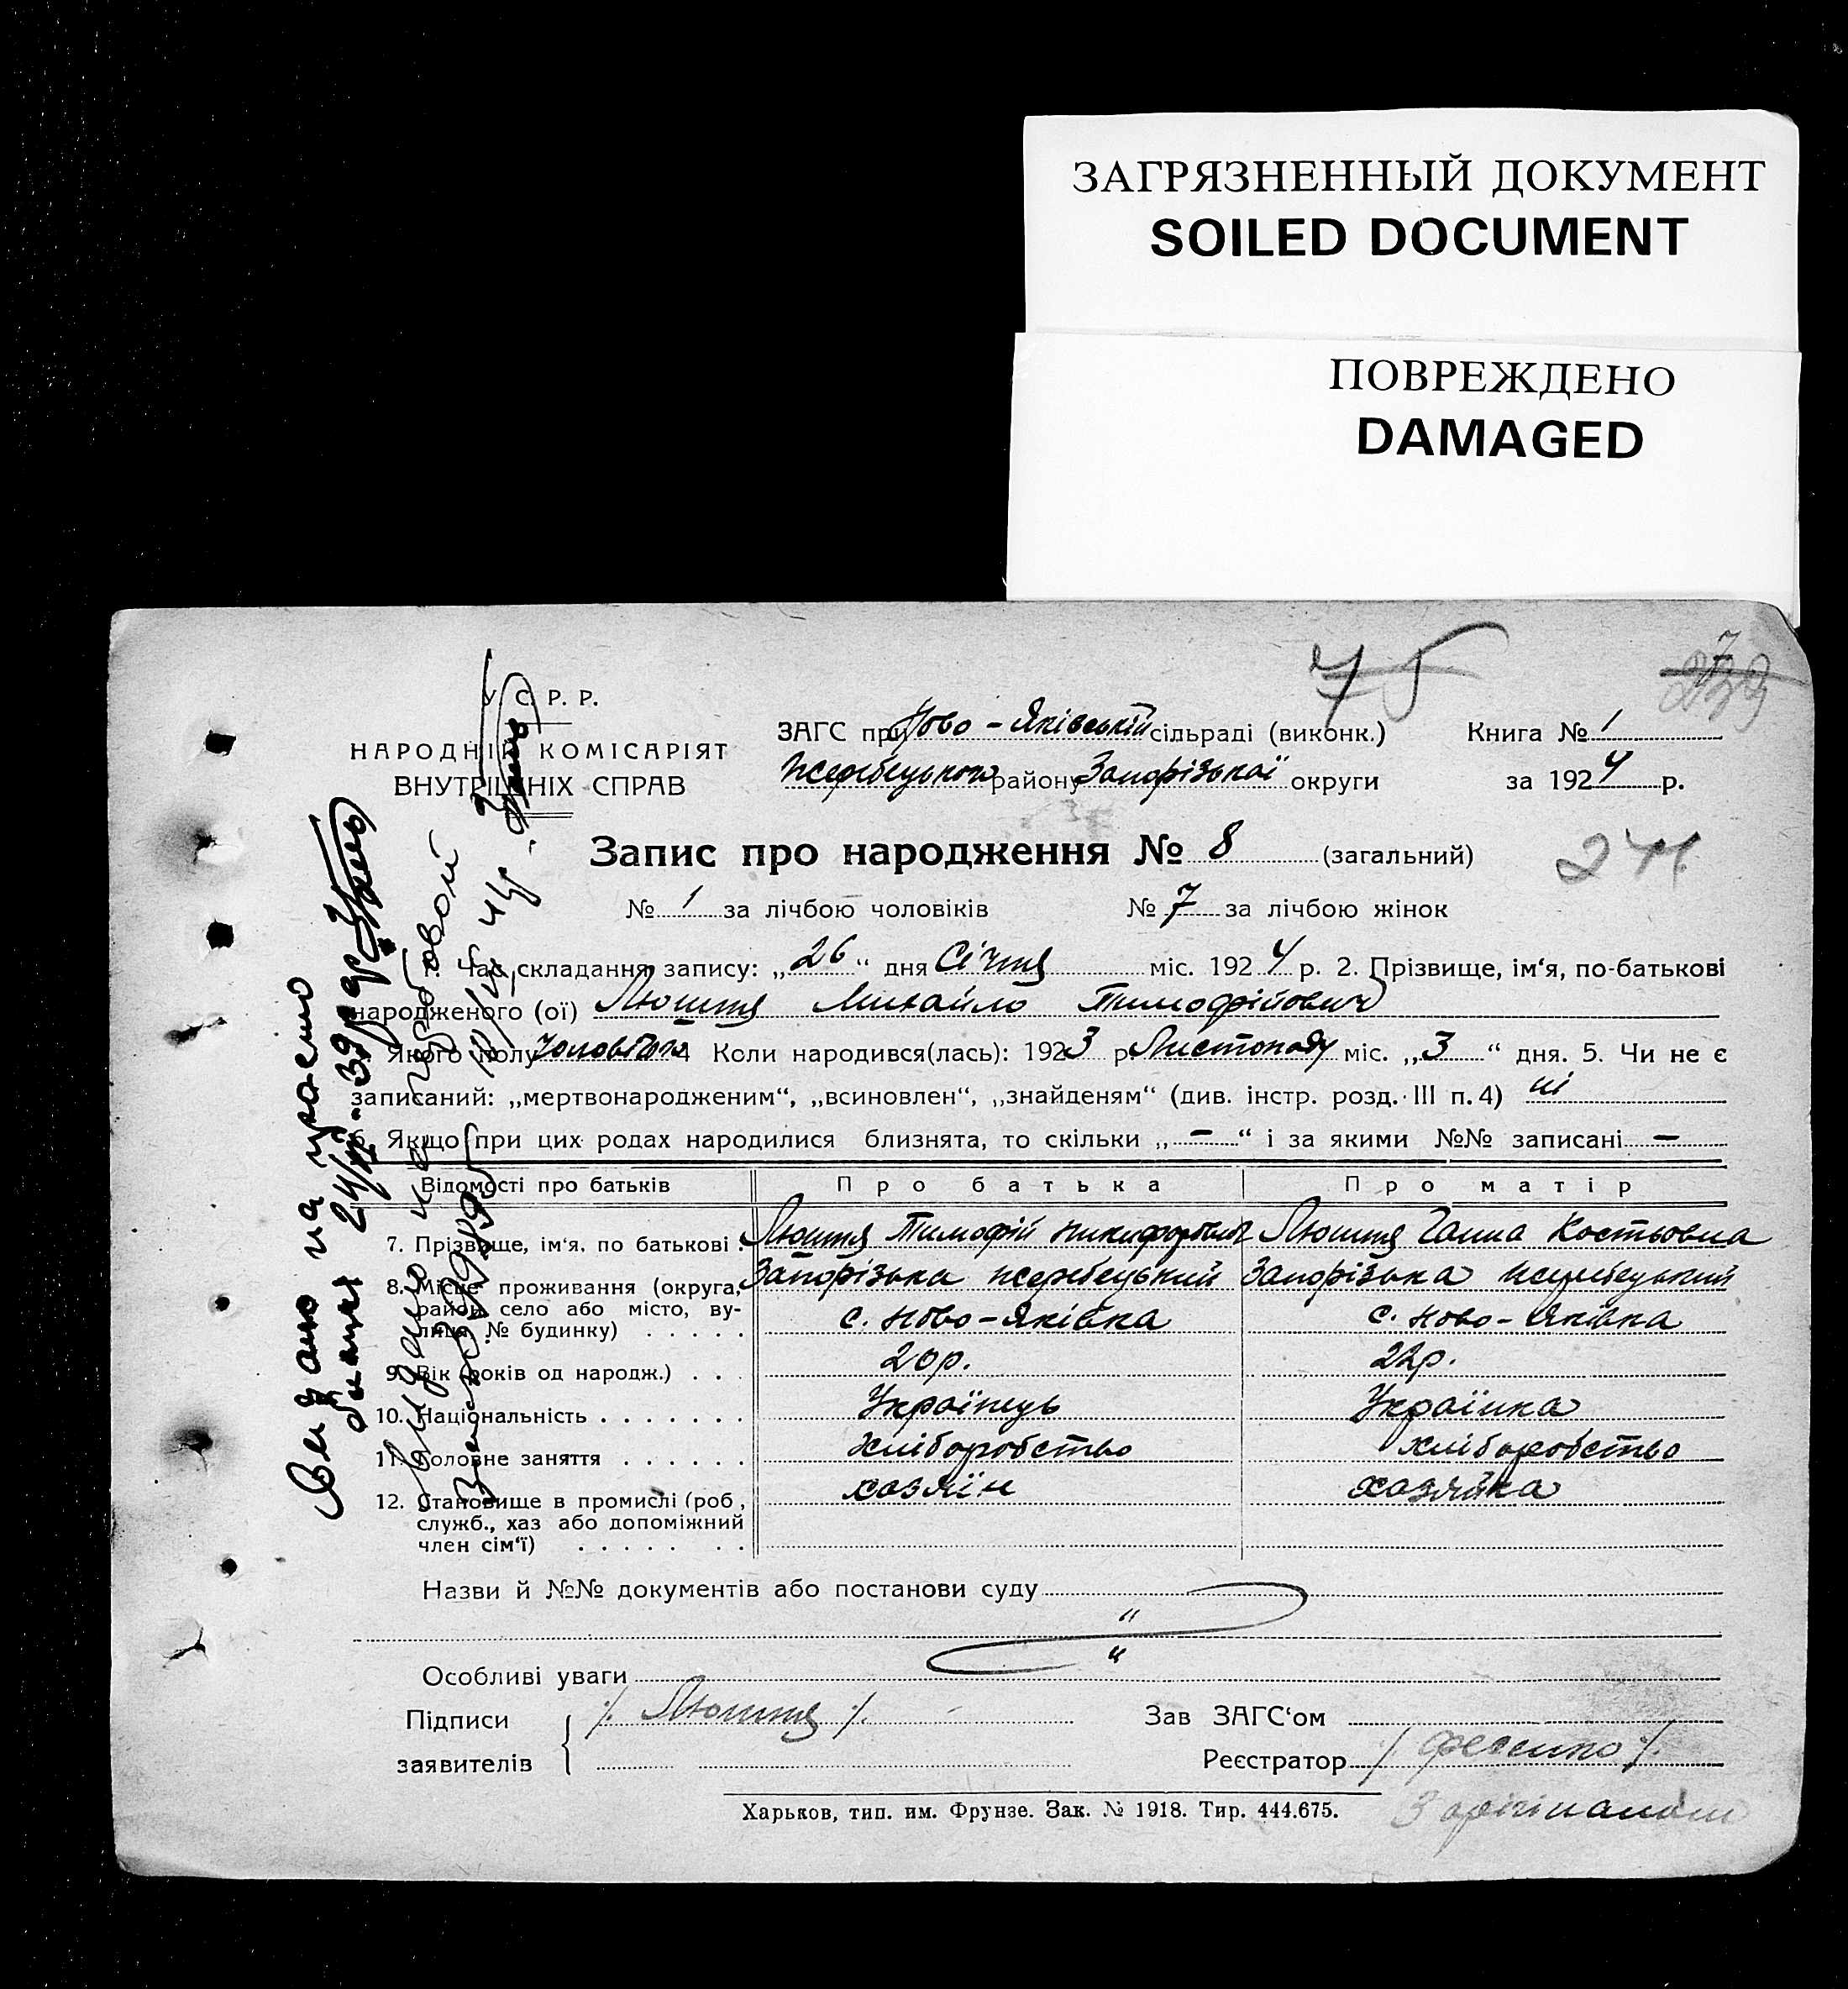 ЗАГРЯЗНЕННЫЙ ДОКУМЕНТ
SOILED DOCUMENT
ПОВРЕЖДЕНО
DAMAGED
75
7
У. С. Р. Р.
НАРОДНІЙ КОМІСАРІЯТ
ВНУТРІШНІХ СПРАВ
ЗАГС при Ново-Яківській сільраді (виконк.) Книга № 1
Жеребецького району Запорізької округи за 1924 р.
Запис про народження № 8 (загальний)
№ 1 за лічбою чоловіків № 7 за лічбою жінок
1. Час складання запису: „26“ дня Січня міс. 1924 р. 2. Прізвище, ім‘я, по-батькові
народженого (ої) Люшня Михайло Тимофійович
Якого полу 4 Коли народився(лась): 1923 р Листопаду міс. „3“ дня. 5. Чи не є
записаний: „мертвонародженим“, „всиновлен“, „знайденям“ (див. інстр. розд. III п. 4) ні
6. Якщо при цих родах народилися близнята, то скільки „—“ і за якими №№ записані —
Відомості про батьків Про батька Про матір
7. Прізвище, ім‘я, по батькові . Люшня Тимофій Никифорович Люшня Ганна Костьовна
8. Місце проживання (округа, Запорізька жеребецький Запорізька жеребецький
район, село або місто, ву-
лиця, № будинку) . . . . . с. Ново-Яківка с. Ново-Яківка
9. Вік (років од народж.) . . . 20р. 22р.
10. Національність . . . . . . . Українець Українка
11. Головне заняття . . . . . . хліборобство хліборобство
12. Становище в промислі (роб., хозяїн хозяйка
служб., хаз або допоміжний
член сім‘ї) . . . . . . .
Назви й №№ документів або постанови суду
"
"
Особливі уваги
Підписи /. Люшня /. Зав ЗАГС‘ом
заявителів Реєстратор /. Фесенко /.
Харьков, тип. им. Фрунзе. Зак. № 1918. Тир. 444.675.
З оригіналом